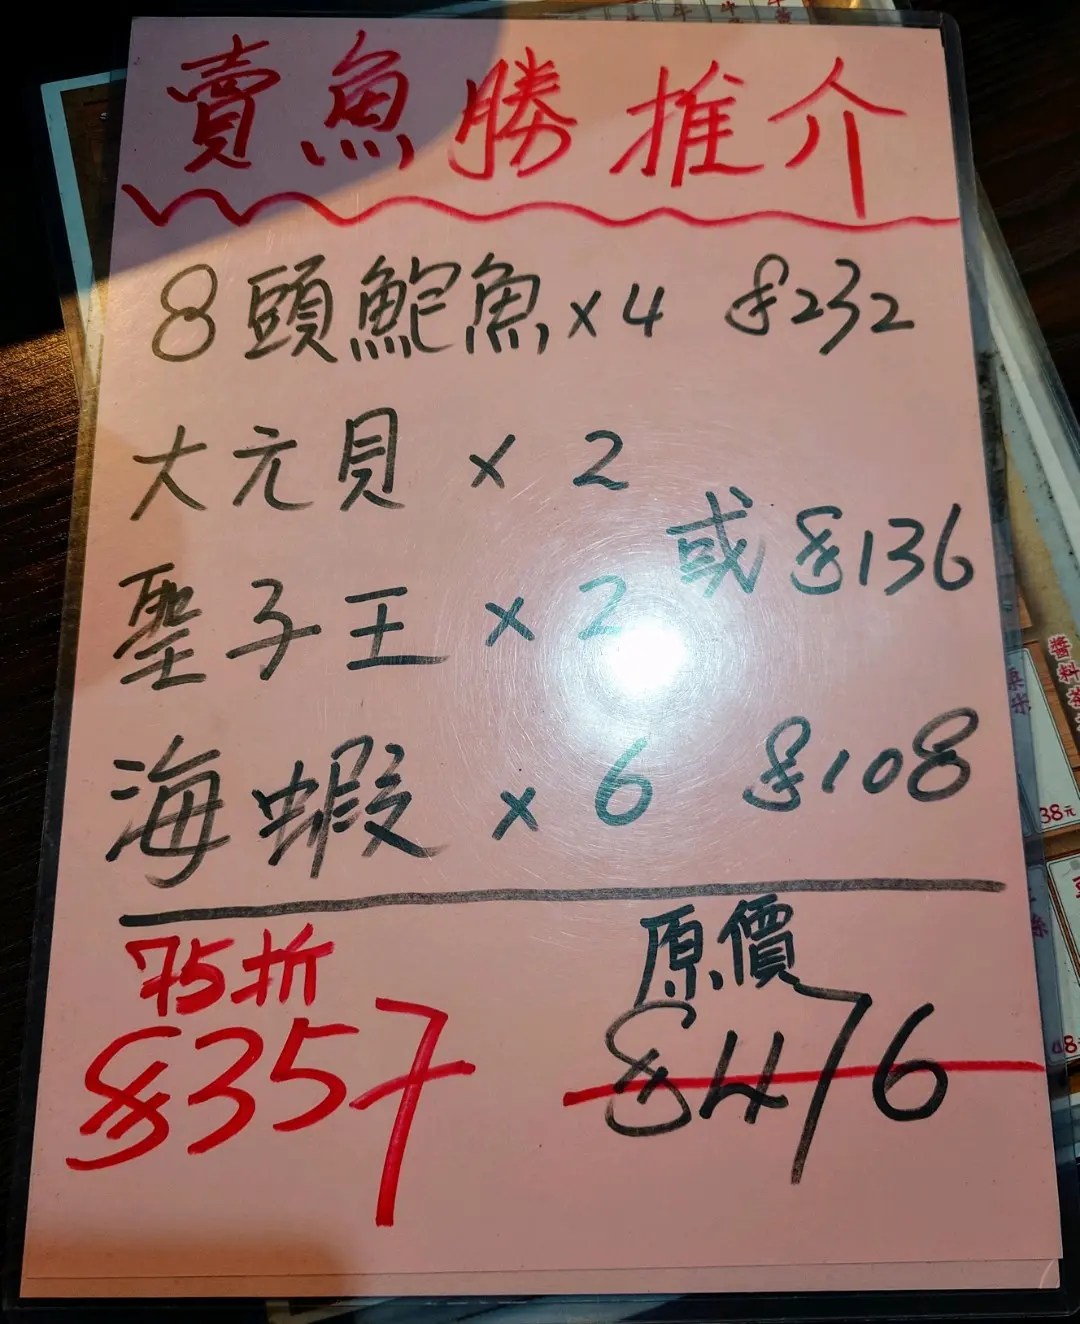 賣魚勝推介
8頭鮑魚×4 $232
大元貝×2
或 $136
聖子王×2
海蝦×6 $108
75折
$357
原價
$476
醬料茶
38元